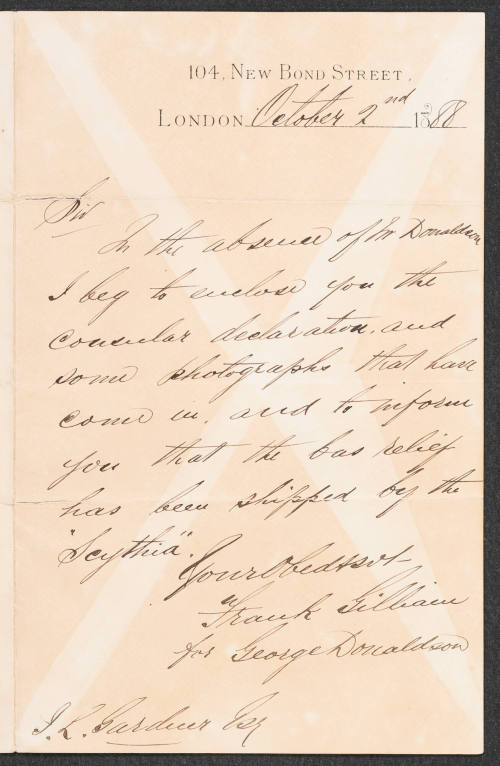 104, New Bond Street,
London October 2nd 1888
Sir
In the absence of Mr Donaldson
I beg to enclose you the
consular declaration, and
some photographs that have
come in, and to inform
you that the bas relief
has been shipped by the
"Scythia".
Your Obedt Svt
Frank Gilliam
for George Donaldson
J. L. Gardner Esq